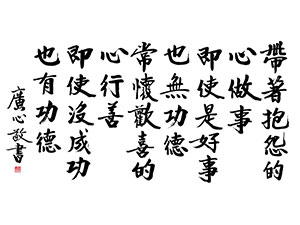 帶著抱怨的
心做事
即使是好事
也無功德
常懷歡喜的
心行善
即使沒成功
也有功德
廣心敬書